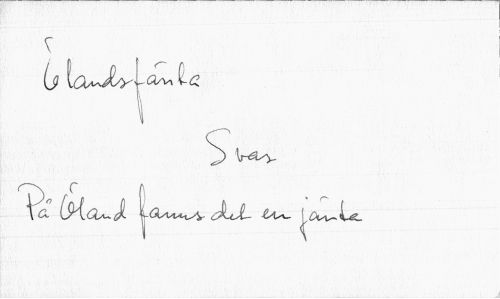 Ölandsjänta
Svar
På Öland fanns det en jänta